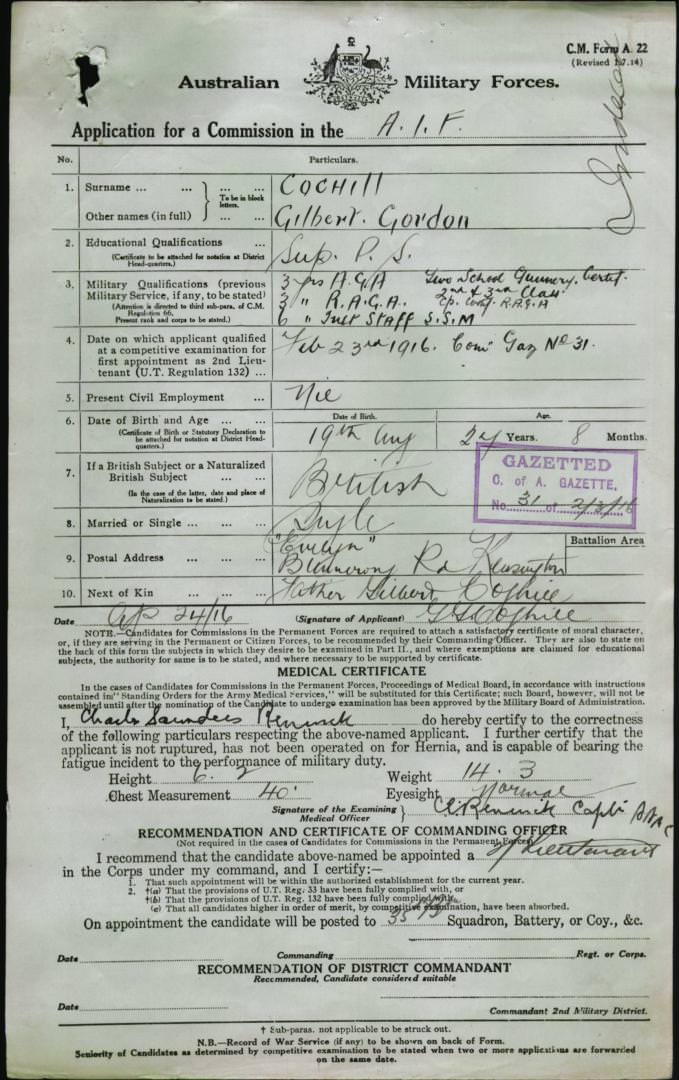 C.M. Form A. 22
(Revised 1.7.14)
Australian Military Forces.
Application for a Commission in the A.I.F.
No. Particulars.
1. Surname ... ... To be in block letters. ... ... COGHILL
Other names (in full) ... ... Gilbert. Gordon
2. Educational Qualifications ... Sup. P. S.
(Certificate to be attached for notation at District
Head-quarters.)
3. Military Qualifications (previous 3 yrs A.G.A Two School Gunnery. Certif.
Military Service, if any, to be stated) 3 " R.A.G.A. 2nd & 3rd Class
(Attention is directed to third sub-para. of C.M.
Regulation 66.
Present rank and corps to be stated.) 6 " Inst Staff S.S.M
4. Date on which applicant qualified Feb 23rd 1916. Com Gaz No 31.
at a competitive examination for
first appointment as 2nd Lieu-
tenant (U.T. Regulation 132) ...
5. Present Civil Employment ... Nil
6. Date of Birth and Age ... ... Date of Birth. Age.
(Certificate of Birth or Statutory Declaration to
be attached for notation at District Head-
quarters.)
19th Aug 27 Years. 8 Months.
7. If a British Subject or a Naturalized
British Subject ... ... British
(In the case of the latter, date and place of
Naturalization to be stated.)
GAZETTED
C. of A. GAZETTE.
No. 31 of 2/3/16
8. Married or Single ... ... ... Single
9. Postal Address ... ... ... "Evelyn"
Rd Kensington
Battalion Area
10. Next of Kin ... ... ... Father Gilbert Coghill
Date Ap 24/16 (Signature of Applicant) G G Coghill
NOTE.—Candidates for Commissions in the Permanent Forces are required to attach a satisfactory certificate of moral character,
or, if they are serving in the Permanent or Citizen Forces, to be recommended by their Commanding Officer. They are also to state on
the back of this form the subjects in which they desire to be examined in Part II., and where exemptions are claimed for educational
subjects, the authority for same is to be stated, and where necessary to be supported by certificate.
MEDICAL CERTIFICATE
In the cases of Candidates for Commissions in the Permanent Forces, Proceedings of Medical Board, in accordance with instructions
contained in "Standing Orders for the Army Medical Services," will be substituted for this Certificate; such Board, however, will not be
assembled until after the nomination of the Candidate to undergo examination has been approved by the Military Board of Administration.
I, Charles Saunders Renwick do hereby certify to the correctness
of the following particulars respecting the above-named applicant. I further certify that the
applicant is not ruptured, has not been operated on for Hernia, and is capable of bearing the
fatigue incident to the performance of military duty.
Height 6. 2 Weight 14. 3
Chest Measurement 40 Eyesight Normal
Signature of the Examining
Medical Officer C. Renwick Capt AAMC
RECOMMENDATION AND CERTIFICATE OF COMMANDING OFFICER
(Not required in the cases of Candidates for Commissions in the Permanent Forces)
I recommend that the candidate above-named be appointed a Lieutenant
in the Corps under my command, and I certify:—
1. That such appointment will be within the authorized establishment for the current year.
2. †(a) That the provisions of U.T. Reg. 33 have been fully complied with, or
†(b) That the provisions of U.T. Reg. 132 have been fully complied with.
(c) That all candidates higher in order of merit, by competitive examination, have been absorbed.
On appointment the candidate will be posted to 35 Squadron, Battery, or Coy., &c.
Date Commanding Regt. or Corps.
RECOMMENDATION OF DISTRICT COMMANDANT
Recommended, Candidate considered suitable
Date
Commandant 2nd Military District.
† Sub-paras. not applicable to be struck out.
N.B.—Record of War Service (if any) to be shown on back of Form.
Seniority of Candidates as determined by competitive examination to be stated when two or more applications are forwarded
on the same date.